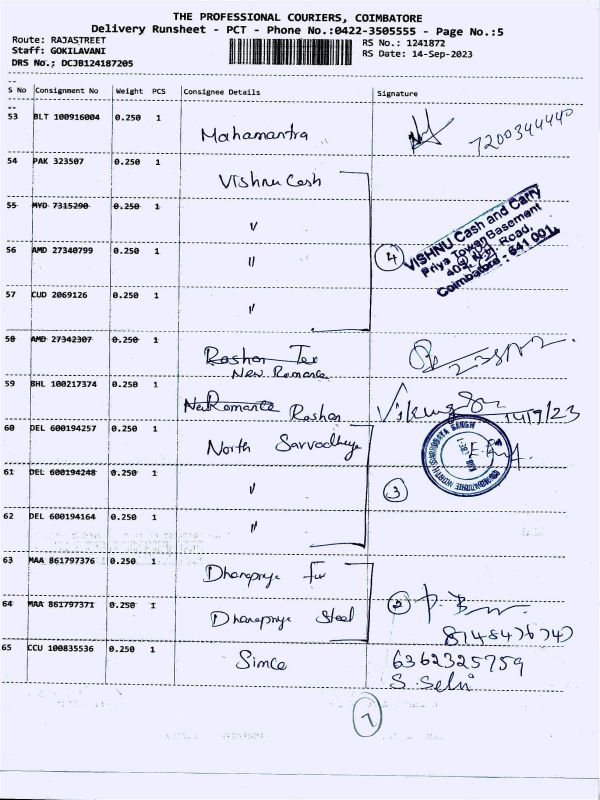 THE PROFESSIONAL COURIERS, COIMBATORE
Delivery Runsheet - PCT - Phone No.:0422-3505555 - Page No.:5
Route: RAJASTREET
Staff: GOKILAVANI
DRS No.; DCJB124187205
RS No.: 1241872
RS Date: 14-Sep-2023
S No Consignment No Weight PCS Consignee Details Signature
53 BLT 100916004 0.250 1 Mahamantra 7200344440
54 PAK 323507 0.250 1 Vishnu Cash
55 MYD 7315290 0.250 1 "
56 AMD 27340799 0.250 1 " 4
VISHNU Cash and Carry
Priya Towar Basement
Road,
Coimbatore - 641 001.
57 CUD 2069126 0.250 1 "
58 AMD 27342307 0.250 1 Roshan Tex
New Romance
59 BHL 100217374 0.250 1 New Romance Roshan 14/9/23
60 DEL 600194257 0.250 1 North Sarvodheya
61 DEL 600194248 0.250 1 " 3
62 DEL 600194164 0.250 1 "
63 MAA 861797376 0.250 1
64 MAA 861797371 0.250 1 Steel 2
65 CCU 100835536 0.250 1 Simco 6362325759
S. Selvi
7